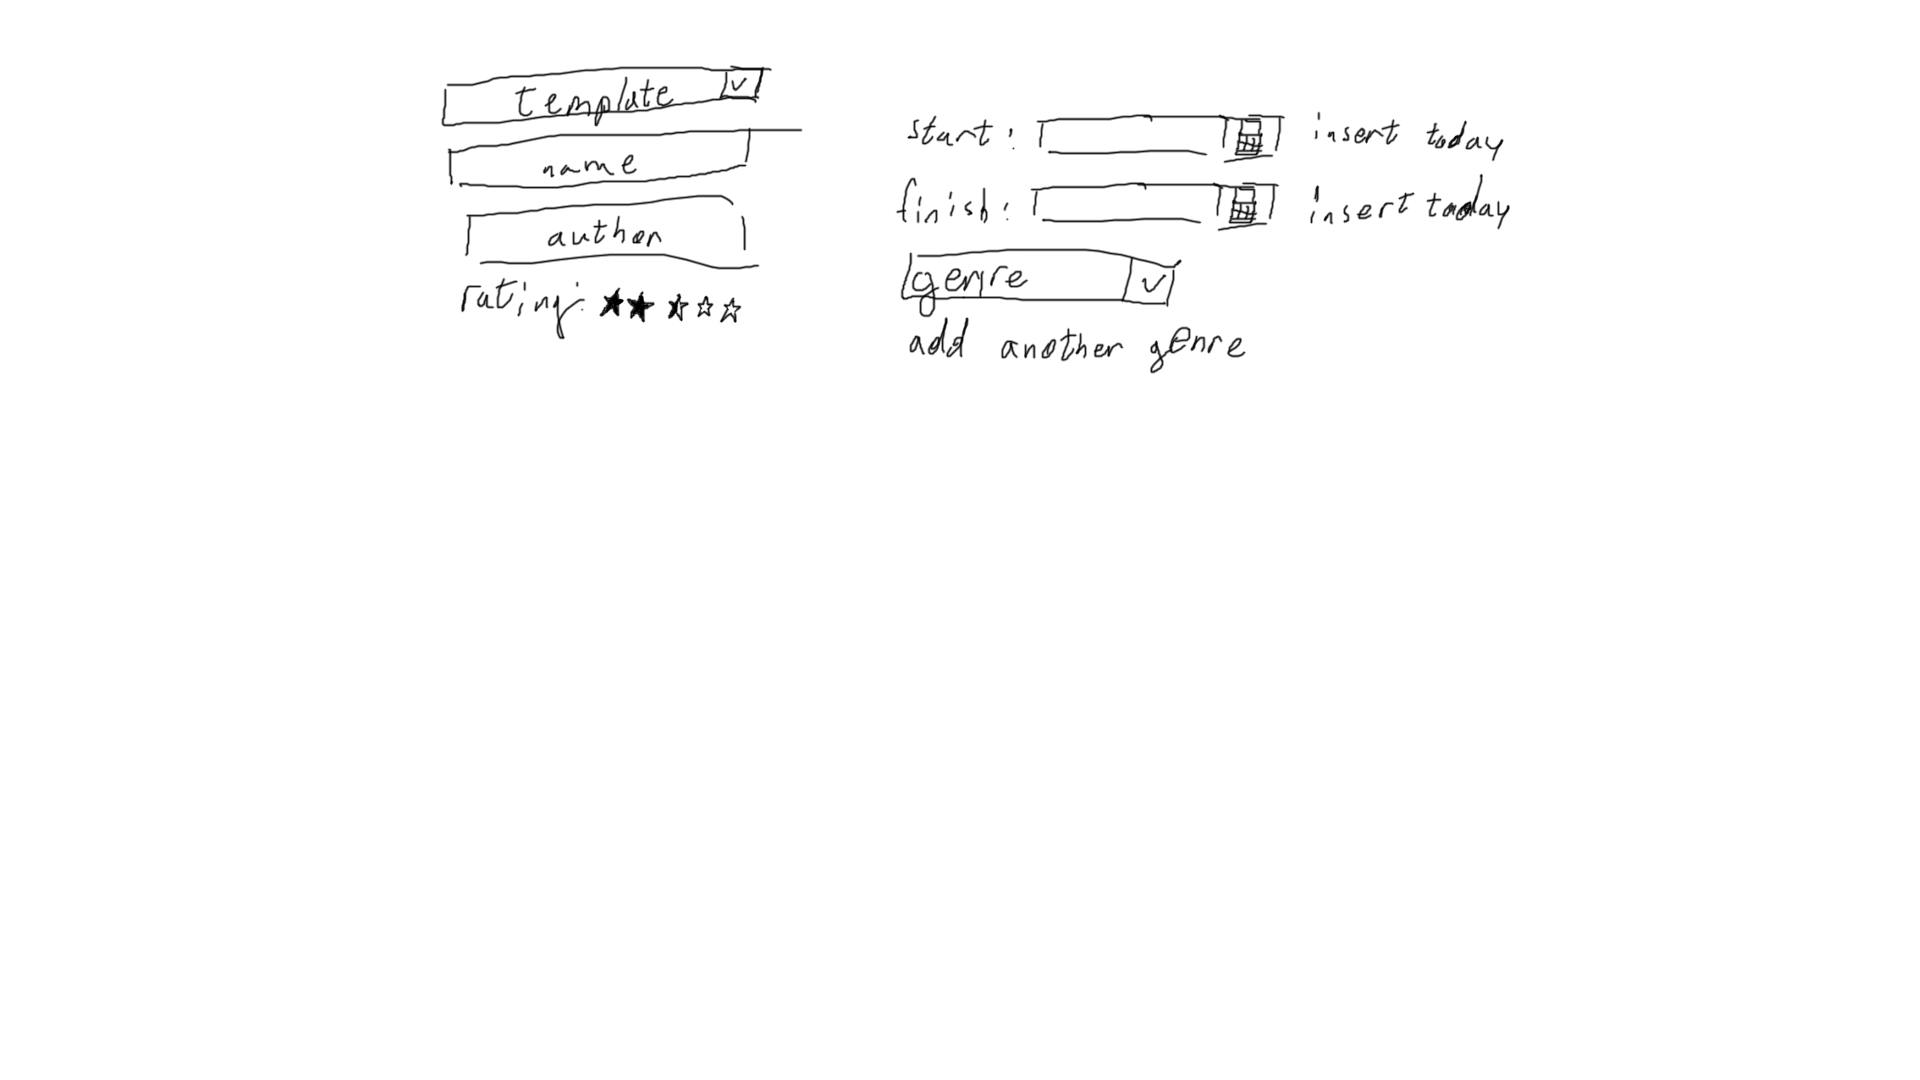 template
name
author
rating:
start: insert today
finish: insert today
genre
add another genre